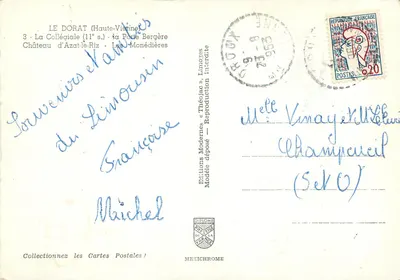 LE DORAT (Haute-Vienne)
3 - La Collégiale (11e s.) - la Porte Bergère
Château d'Azat-le-Riz - Les Monédières
Souvenirs et amitiés
du Limousin
Françoise
Maichel
Collectionnez les Cartes Postales !
Editions Moderne, "Théojac", Limoges
Modèle déposé - Reproduction interdite
MEXICHROME
REPUBLIQUE FRANÇAISE
POSTES
0,20
Melle Vinay et M
Champcueil
(S et O)